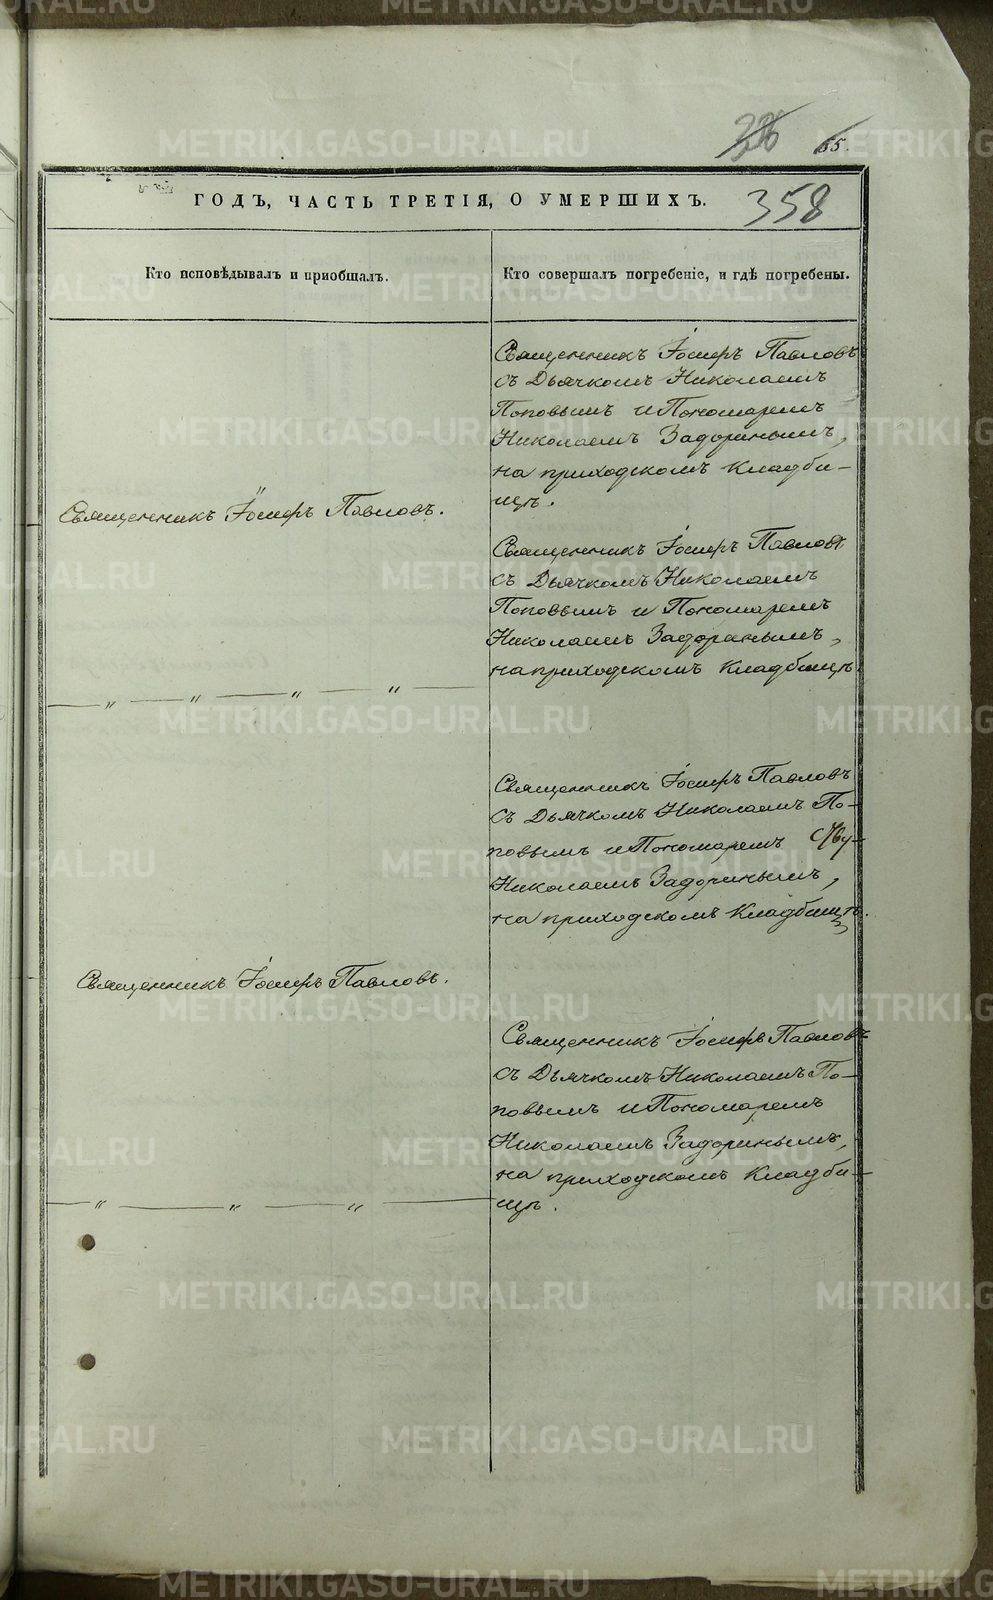 326 65.
ГОДЪ, ЧАСТЬ ТРЕТІЯ, О УМЕРШИХЪ. 358
Кто исповѣдывалъ и приобщалъ.
Кто совершалъ погребеніе, и гдѣ погребены.
Священникъ Іосифъ Павловъ
съ Дьячкомъ Николаемъ
Поповымъ и Пономаремъ
Николаемъ Задоринымъ,
на приходскомъ кладби-
щѣ.
Священникъ Іосифъ Павловъ.
Священникъ Іосифъ Павловъ
съ Дьячкомъ Николаемъ
Поповымъ и Пономаремъ
Николаемъ Задоринымъ,
на приходскомъ кладбищѣ.
— " — " — " — " —
Священникъ Іосифъ Павловъ
съ Дьячкомъ Николаемъ По-
повымъ и Пономаремъ
Николаемъ Задоринымъ,
на приходскомъ кладбищѣ.
Священникъ Іосифъ Павловъ.
Священникъ Іосифъ Павловъ
съ Дьячкомъ Николаемъ По-
повымъ и Пономаремъ
Николаемъ Задоринымъ,
на приходскомъ кладби-
щѣ.
— " — " — " —
METRIKI.GASO-URAL.RU